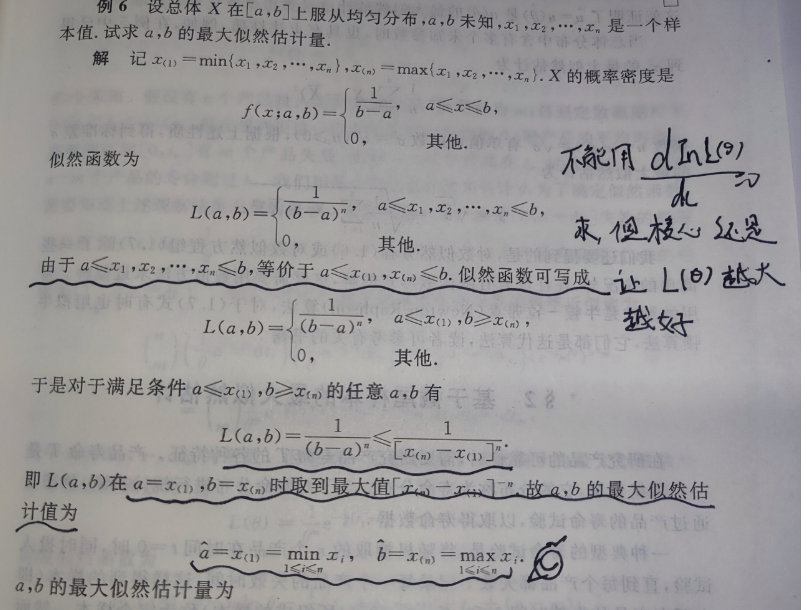 例6 设总体 X 在[a,b]上服从均匀分布,a,b 未知,x₁,x₂,⋯,xₙ 是一个样
本值.试求 a,b 的最大似然估计量.
解 记 x₍₁₎=min{x₁,x₂,⋯,xₙ},x₍ₙ₎=max{x₁,x₂,⋯,xₙ}.X 的概率密度是
f(x;a,b)={ 1/(b-a), a≤x≤b,
0, 其他.
似然函数为
L(a,b)={ 1/(b-a)ⁿ, a≤x₁,x₂,⋯,xₙ≤b,
0, 其他.
由于 a≤x₁,x₂,⋯,xₙ≤b,等价于 a≤x₍₁₎,x₍ₙ₎≤b.似然函数可写成
L(a,b)={ 1/(b-a)ⁿ, a≤x₍₁₎,b≥x₍ₙ₎,
0, 其他.
于是对于满足条件 a≤x₍₁₎,b≥x₍ₙ₎的任意 a,b 有
L(a,b)=1/(b-a)ⁿ≤1/[x₍ₙ₎-x₍₁₎]ⁿ.
即 L(a,b)在 a=x₍₁₎,b=x₍ₙ₎时取到最大值[x₍ₙ₎-x₍₁₎]⁻ⁿ.故 a,b 的最大似然估
计值为
â=x₍₁₎=min xᵢ, b̂=x₍ₙ₎=max xᵢ.
1≤i≤n 1≤i≤n
a,b 的最大似然估计量为
不能用 dlnL(θ)
求,但核心还是
让 L(θ)越大
越好